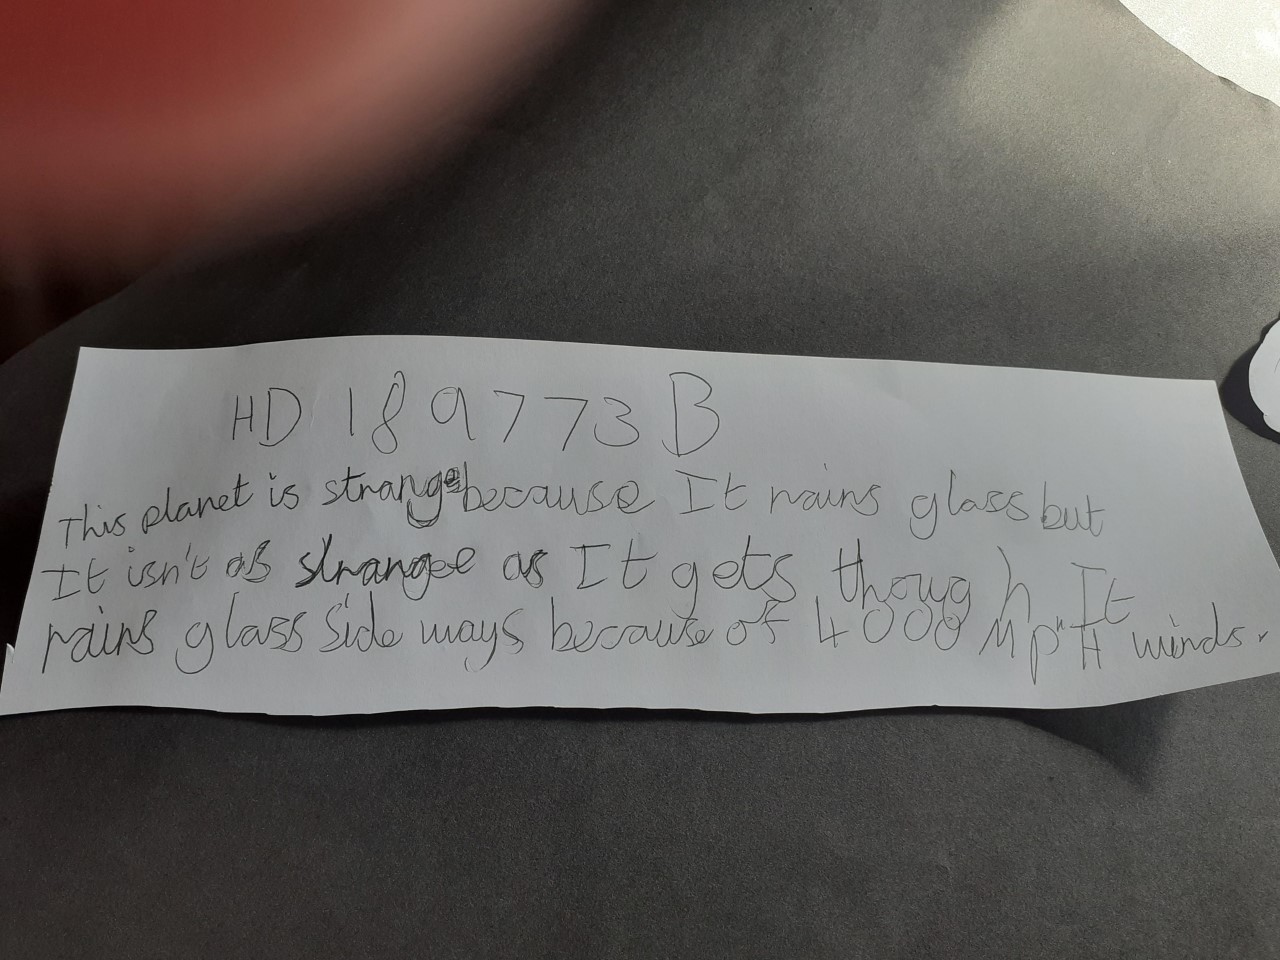 HD 189773 B
This planet is strange because It rains glass but
It isn't as strange as It gets though It
rains glass side ways because of 4000 MpH winds.